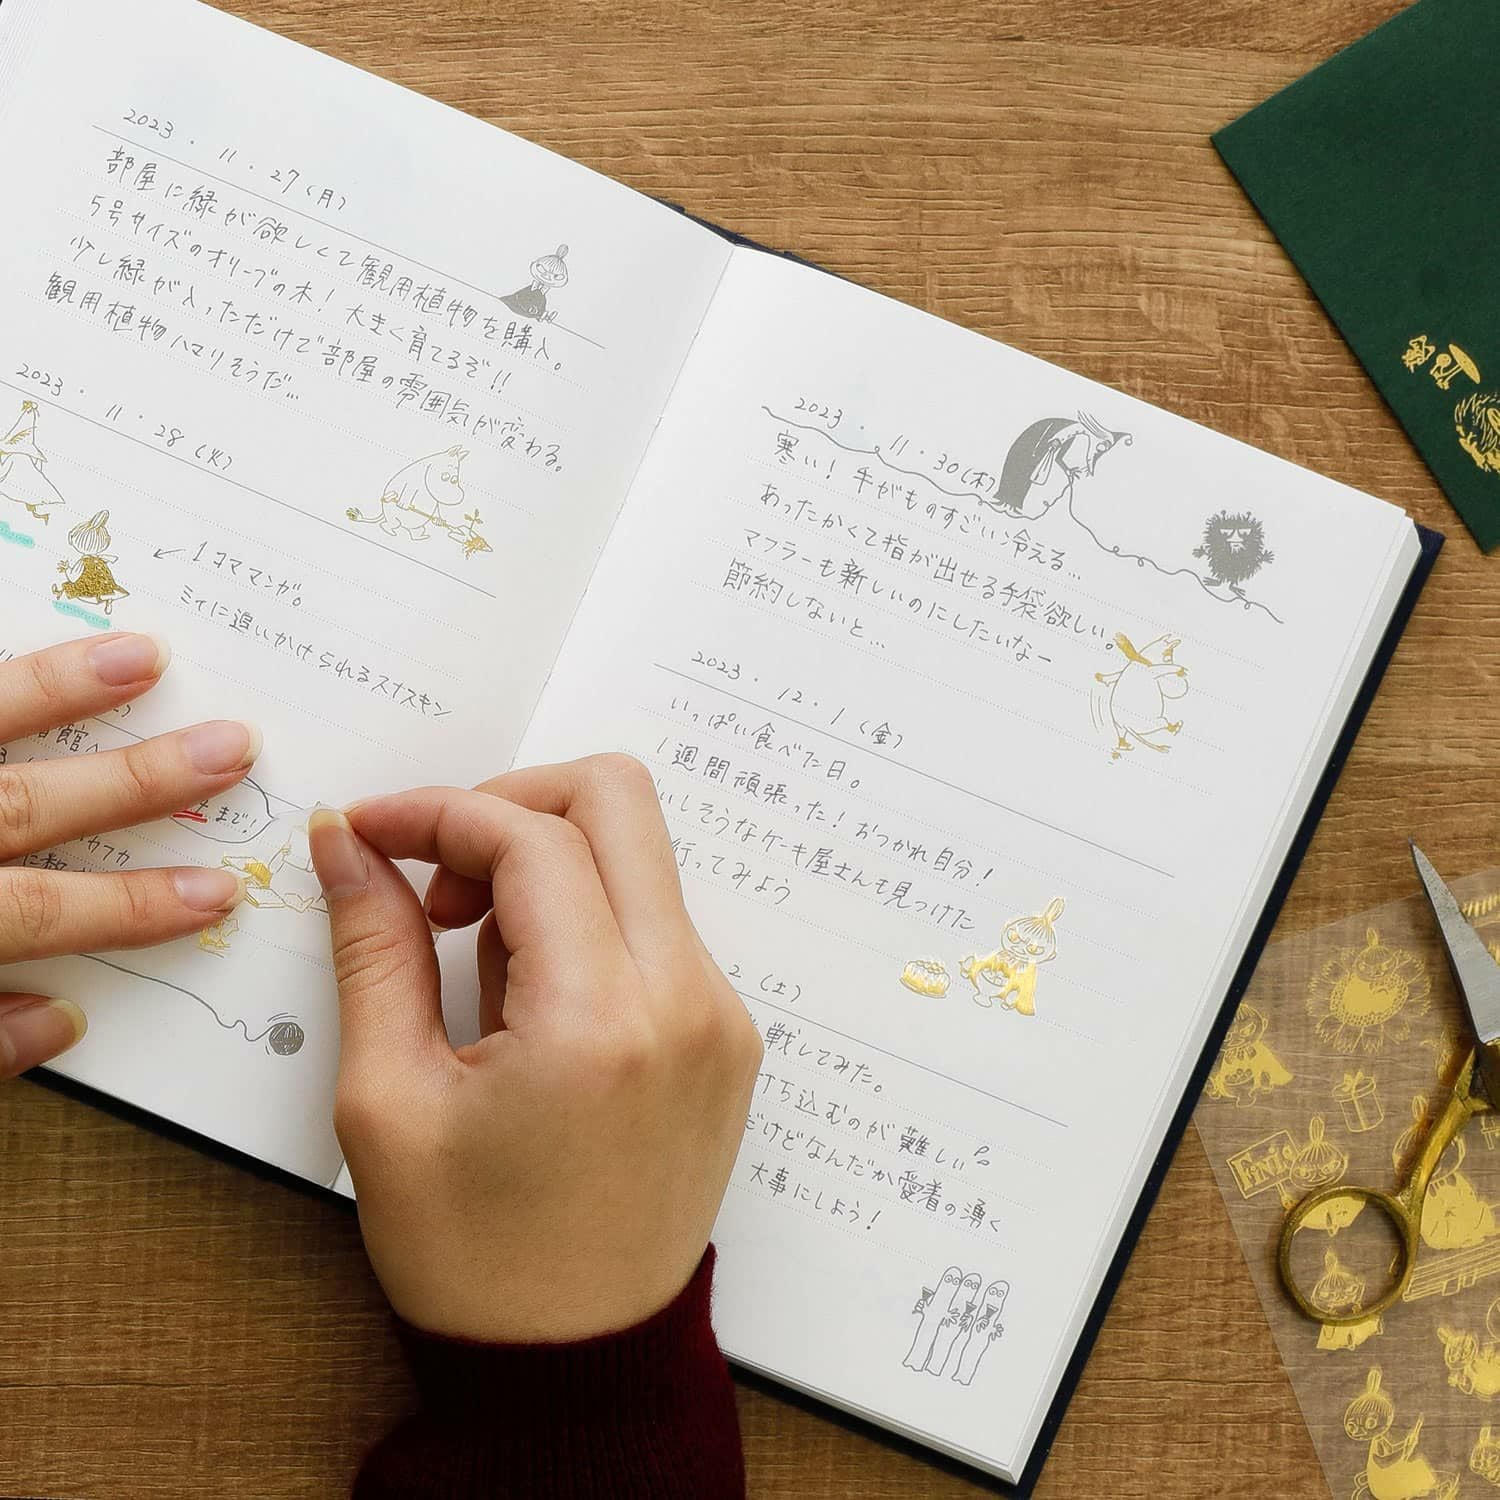 2023 . 11 . 27 (月)
部屋に緑が欲しくて観用植物を購入。
5号サイズのオリーブの木! 大きく育てるぞ!!
少し緑が入っただけで部屋の雰囲気が変わる。
観用植物ハマりそうだ...
2023 . 11 . 28 (火)
↙ 1コママンガ。
ミィに追いかけられるスナスキン
館へ
土まで!
カフカ
2023 . 11 . 30 (木)
寒い! 手がものすごい冷える...
あったかくて指が出せる手袋欲しい。
マフラーも新しいのにしたいなー
節約しないと...
2023 . 12 . 1 (金)
いっぱい食べた日。
1週間頑張った! おつかれ自分!
いしそうなケーキ屋さんも見つけた
行ってみよう
2 (土)
戦してみた。
打ち込むのが難しい。
だけどなんだか愛着の湧く
大事にしよう!
FiNiS